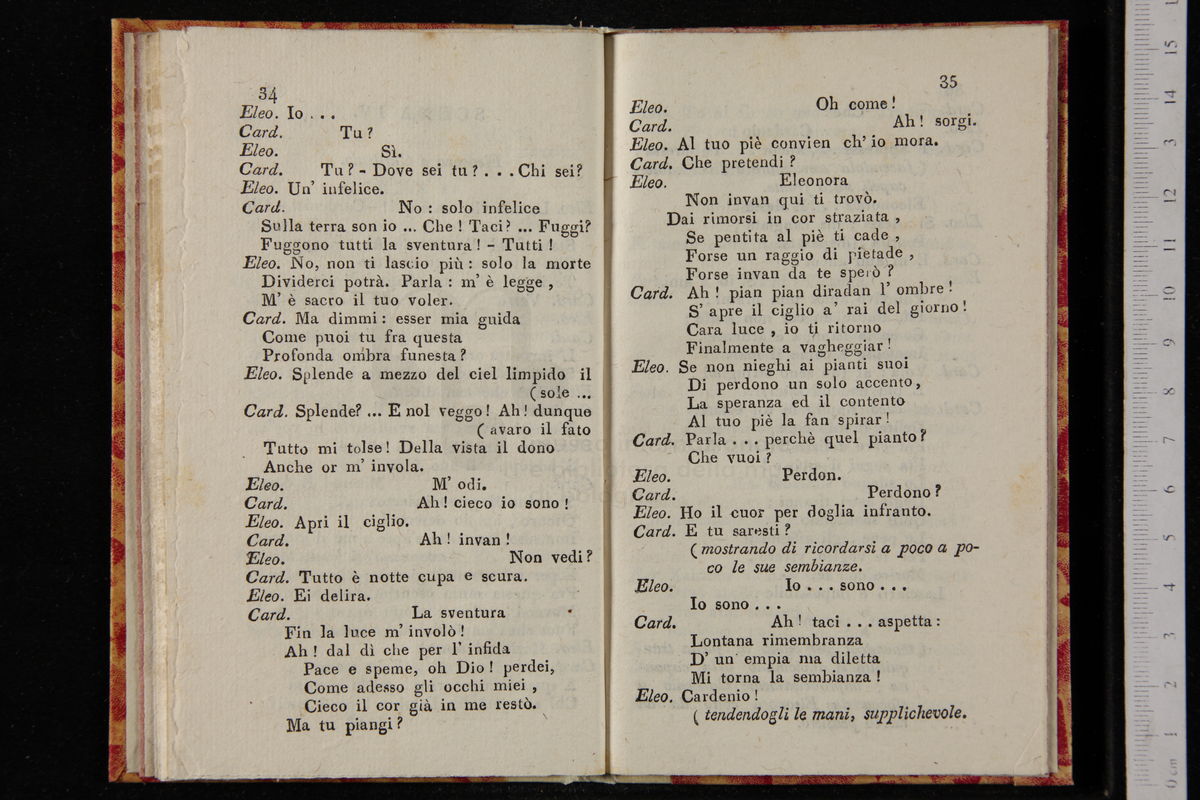 34
Eleo. Io . . .
Card. Tu?
Eleo. Sì.
Card. Tu? - Dove sei tu? . . . Chi sei?
Eleo. Un' infelice.
Card. No : solo infelice
Sulla terra son io ... Che ! Taci? ... Fuggi?
Fuggono tutti la sventura ! - Tutti !
Eleo. No, non ti lascio più : solo la morte
Dividerci potrà. Parla : m' è legge ,
M' è sacro il tuo voler.
Card. Ma dimmi : esser mia guida
Come puoi tu fra questa
Profonda ombra funesta?
Eleo. Splende a mezzo del ciel limpido il
( sole ...
Card. Splende? ... E nol veggo ! Ah ! dunque
( avaro il fato
Tutto mi tolse ! Della vista il dono
Anche or m' invola.
Eleo. M' odi.
Card. Ah ! cieco io sono !
Eleo. Apri il ciglio.
Card. Ah ! invan !
Eleo. Non vedi?
Card. Tutto è notte cupa e scura.
Eleo. Ei delira.
Card. La sventura
Fin la luce m' involò !
Ah ! dal dì che per l' infida
Pace e speme, oh Dio ! perdei,
Come adesso gli occhi miei ,
Cieco il cor già in me restò.
Ma tu piangi?
35
Eleo. Oh come !
Card. Ah ! sorgi.
Eleo. Al tuo piè convien ch' io mora.
Card. Che pretendi ?
Eleo. Eleonora
Non invan qui ti trovò.
Dai rimorsi in cor straziata ,
Se pentita al piè ti cade ,
Forse un raggio di pietade ,
Forse invan da te sperò ?
Card. Ah ! pian pian diradan l' ombre !
S' apre il ciglio a' rai del giorno !
Cara luce , io ti ritorno
Finalmente a vagheggiar !
Eleo. Se non nieghi ai pianti suoi
Di perdono un solo accento,
La speranza ed il contento
Al tuo piè la fan spirar !
Card. Parla . . . perchè quel pianto?
Che vuoi ?
Eleo. Perdon.
Card. Perdono ?
Eleo. Ho il cuor per doglia infranto.
Card. E tu saresti ?
( mostrando di ricordarsi a poco a po-
co le sue sembianze.
Eleo. Io . . . sono . . .
Io sono . . .
Card. Ah ! taci . . . aspetta :
Lontana rimembranza
D' un' empia ma diletta
Mi torna la sembianza !
Eleo. Cardenio !
( tendendogli le mani, supplichevole.
0 cm 1 2 3 4 5 6 7 8 9 10 11 12 13 14 15